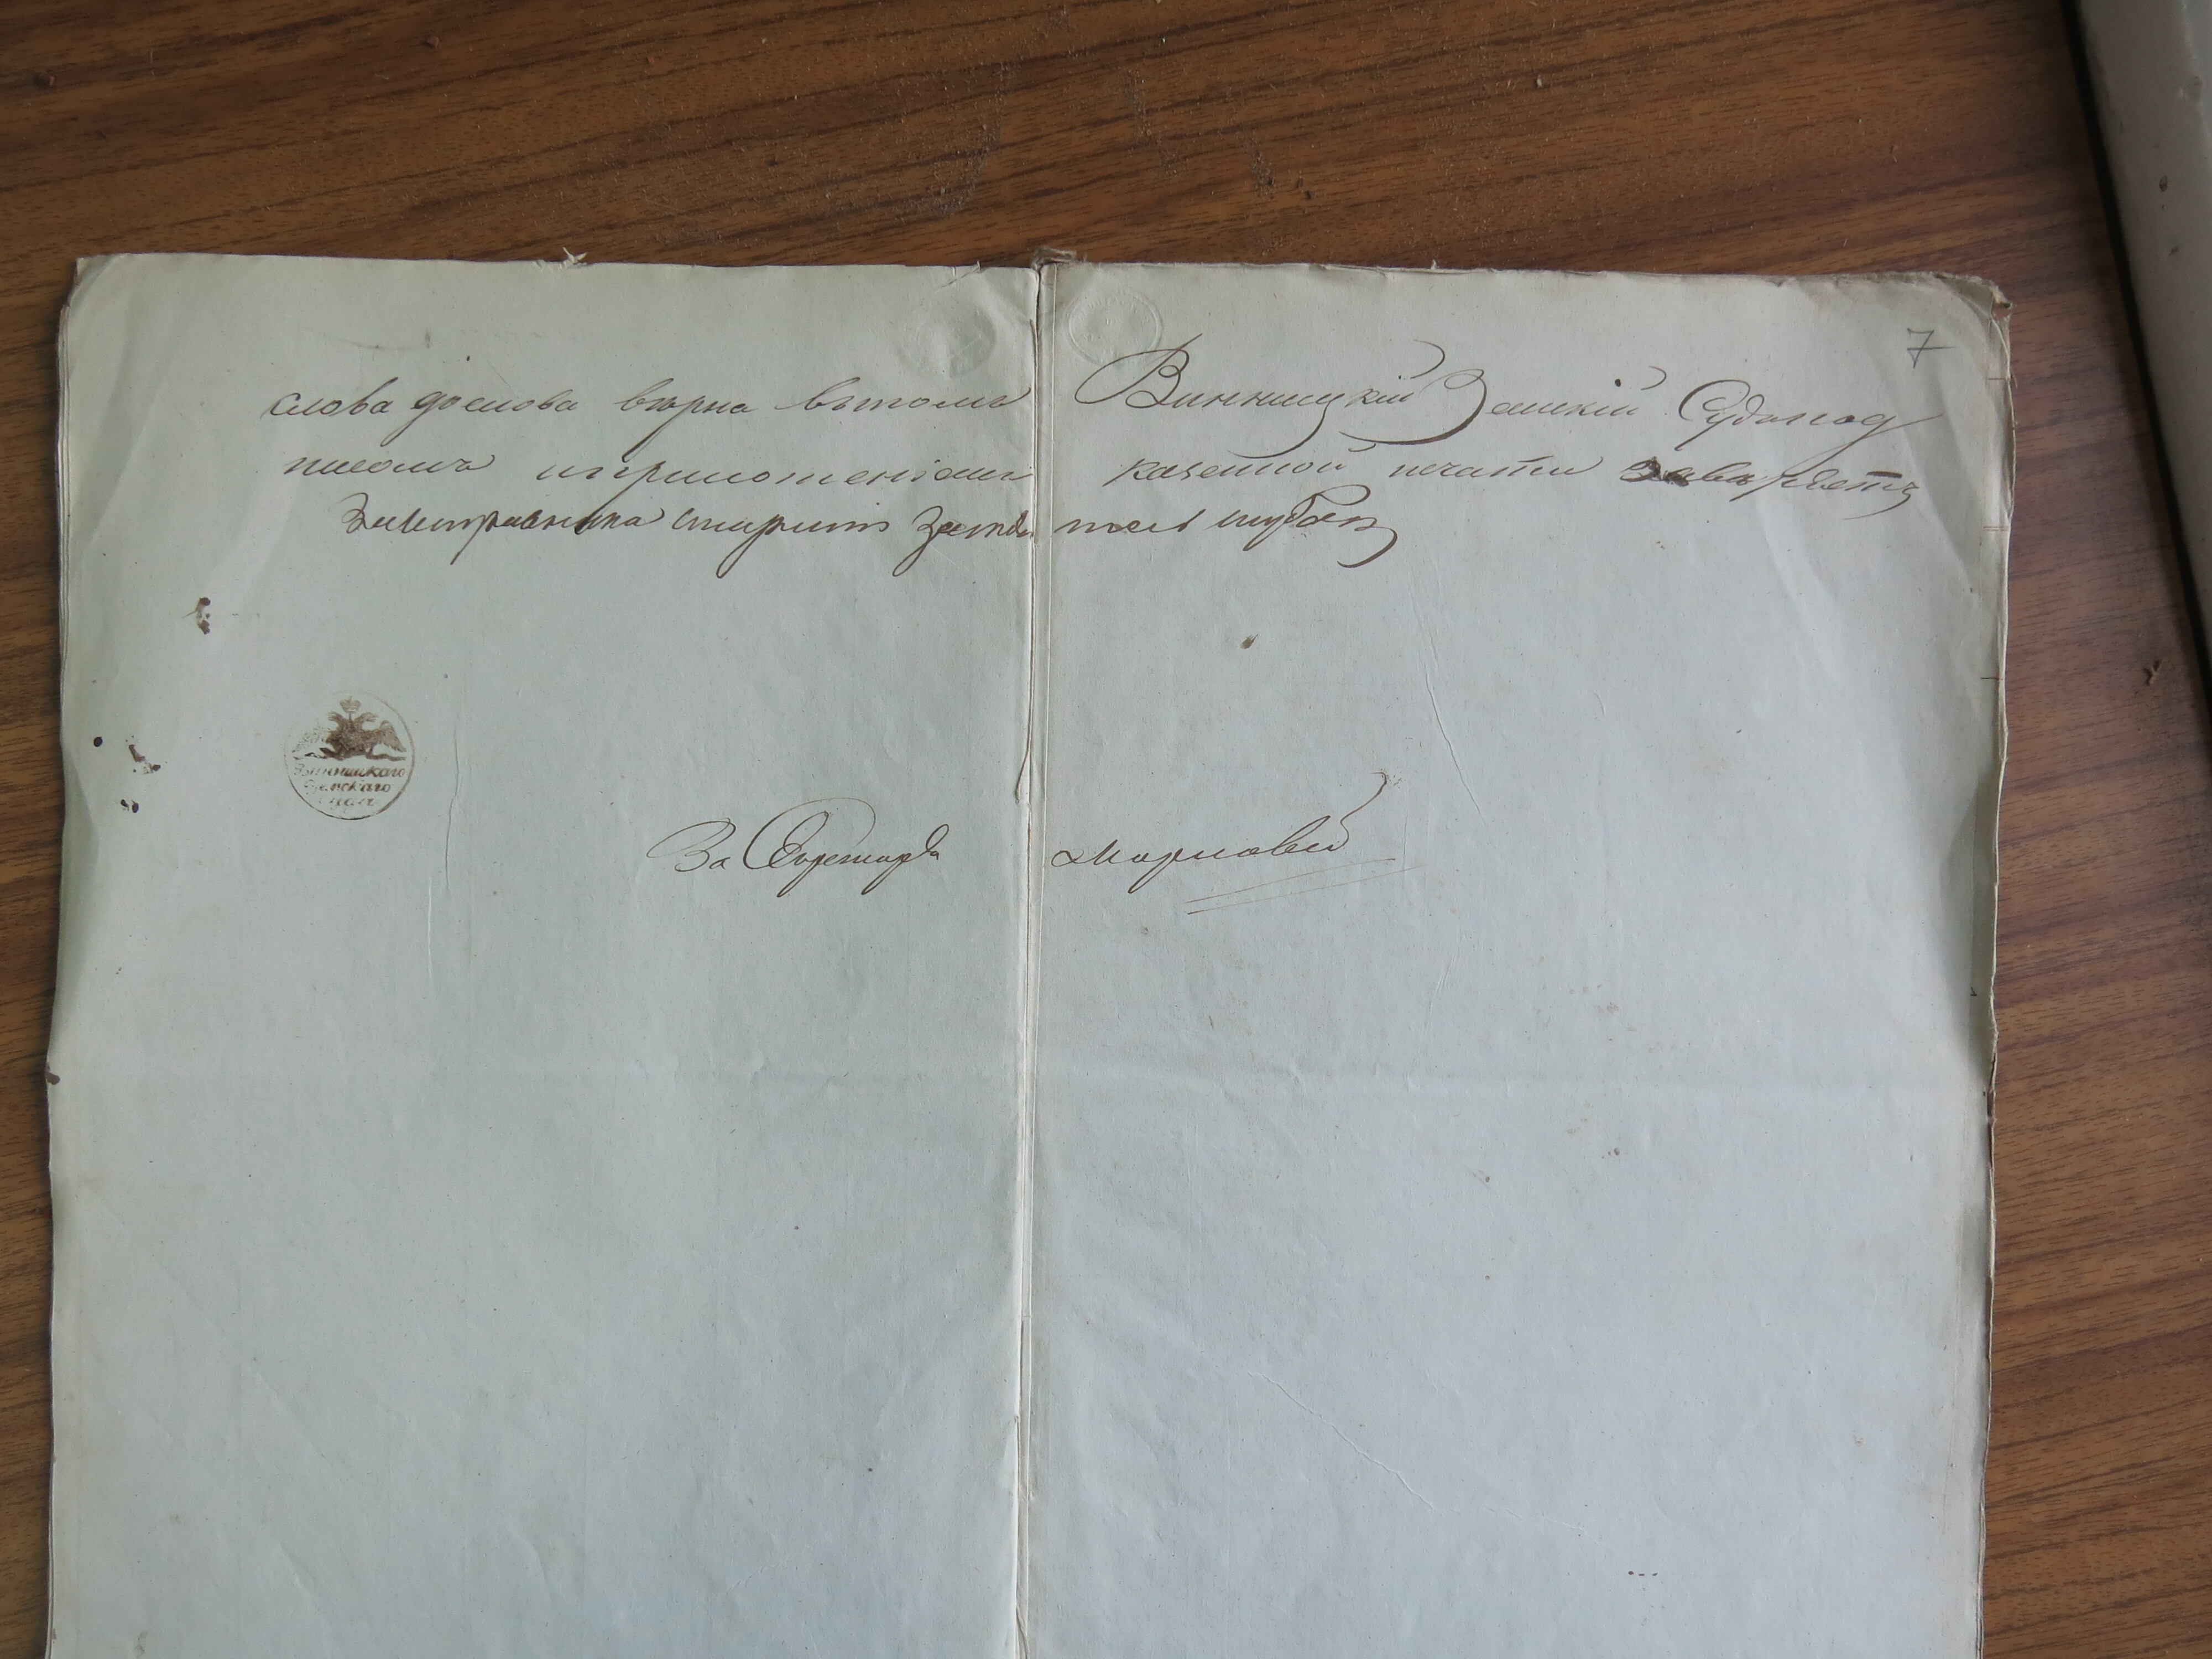 7
слова дослова вѣрна вътомъ Винницкій Земскій Судъ под
писомъ иприложеніемъ казенной печати завѣряетъ
За исправника старшій Засѣдатель
Винницкаго
Земскаго
Суда
За Секретаря